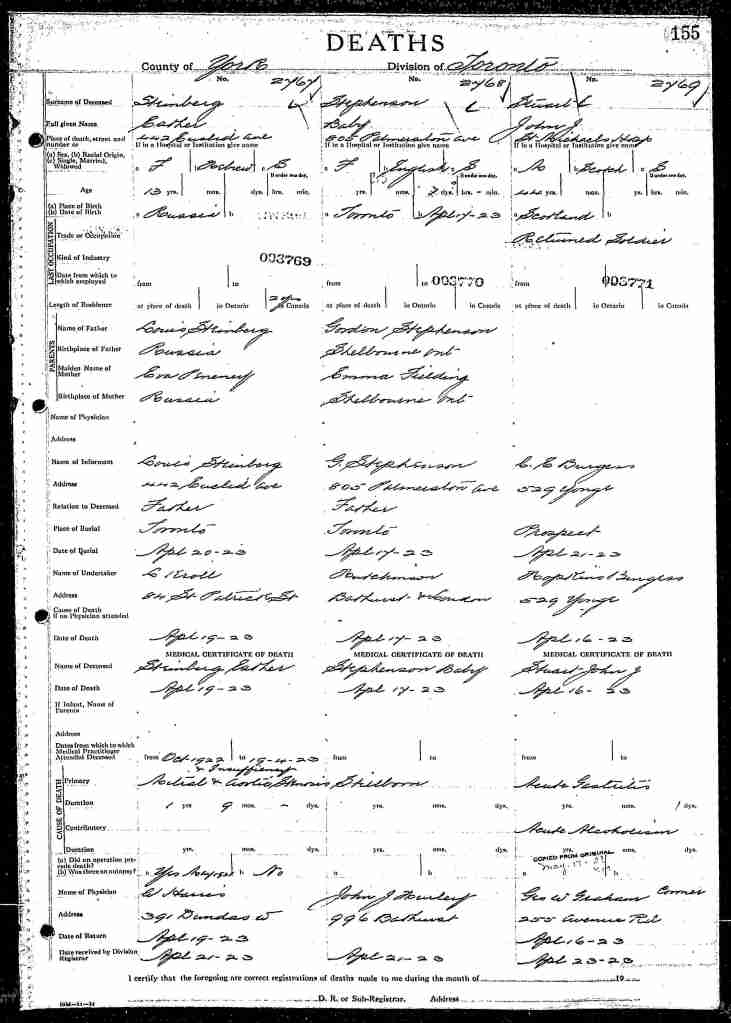 155
DEATHS
County of York Division of Toronto
No. 2767 No. 2768 No. 2769
Surname of Deceased Steinberg Stephenson Stuart
Full given Name Esther Baby John J.
Place of death, street and number or 442 Euclid Ave 805 Palmerston Ave St. Michaels Hosp
If in a Hospital or Institution give name If in a Hospital or Institution give name If in a Hospital or Institution give name
(a) Sex, (b) Racial Origin, (c) Single, Married, Widowed a F Hebrew S a F English S a M Scotch S
If under one day, If under one day, If under one day,
Age 13 yrs. mos. dys. hrs. min. yrs. mos. dys. hrs. - min. 44 yrs. mos. dys. hrs. min.
(a) Place of Birth (b) Date of Birth a Russia b a Toronto b Apl 17-23 a Scotland b
LAST OCCUPATION
Trade or Occupation Returned Soldier
Kind of Industry 003769
Date from which to which employed from to from to 003770 from 003771
Length of Residence at place of death in Ontario in Canada at place of death in Ontario in Canada at place of death in Ontario in Canada
PARENTS
Name of Father Louis Steinberg Gordon Stephenson
Birthplace of Father Russia Shelbourne Ont
Maiden Name of Mother Eva Emma Fielding
Birthplace of Mother Russia Shelbourne Ont
Name of Physician
Address
Name of Informant Louis Steinberg G. Stephenson C. E Burgess
Address 442 Euclid Ave 805 Palmerston Ave 529 Yonge
Relation to Deceased Father Father
Place of Burial Toronto Toronto Prospect
Date of Burial Apl 20-23 Apl 17-23 Apl 21-23
Name of Undertaker Kroll Hutchinson Hopkins Burgess
Address 84 St. Patrick St Bathurst & London 529 Yonge
Cause of Death if no Physician attended
Date of Death Apl 19-23 Apl 17-23 Apl 16-23
MEDICAL CERTIFICATE OF DEATH MEDICAL CERTIFICATE OF DEATH MEDICAL CERTIFICATE OF DEATH
Name of Deceased Steinberg Esther Stephenson Baby Stuart John J
Date of Death Apl 19-23 Apl 17-23 Apl 16-23
If Infant, Name of Parents
Address
Dates from which to which Medical Practitioner Attended Deceased from Oct 1922 to 19-4-23 from to from to
& Insufficiency
CAUSE OF DEATH
Primary Mitral & Aortic Stenosis Stillborn Acute Gastritis
Duration 1 yrs 9 mos. - dys. yrs. mos. dys. yrs. mos. 1 dys.
Contributory Acute Alcoholism
Duration yrs. mos. dys. yrs. mos. dys. yrs. mos. dys.
COPIED FROM ORIGINAL
(a) Did an operation precede death? (b) Was there an autopsy? a Yes b No a b a b
Name of Physician W Harris John J Hurley Geo W Graham Coroner
Address 391 Dundas W 996 Bathurst 255 Avenue Rd
Date of Return Apl 19-23 Apl 16-23
Date received by Division Registrar Apl 21-23 Apl 21-23 Apl 23-23
I certify that the foregoing are correct registrations of deaths made to me during the month of 19
D. R. or Sub-Registrar. Address